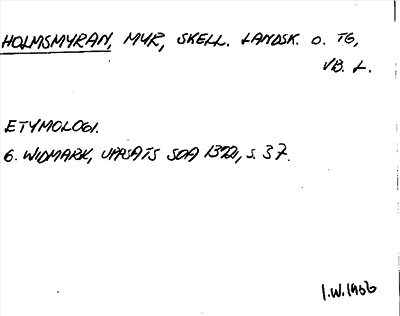 HOLMSMYRAN, MYR, SKELL. LANDSK. O. TG,
VB. L.
ETYMOLOGI.
G. WIDMARK, UPPSATS SOA 1372, S. 37.
I.W. 1966